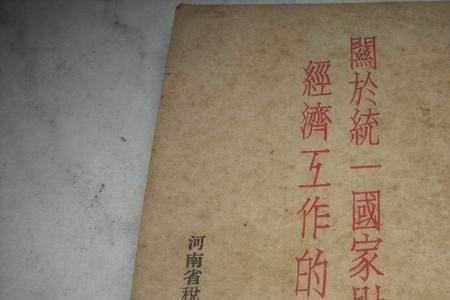 關於統一國家財
經濟工作的
河南省稅